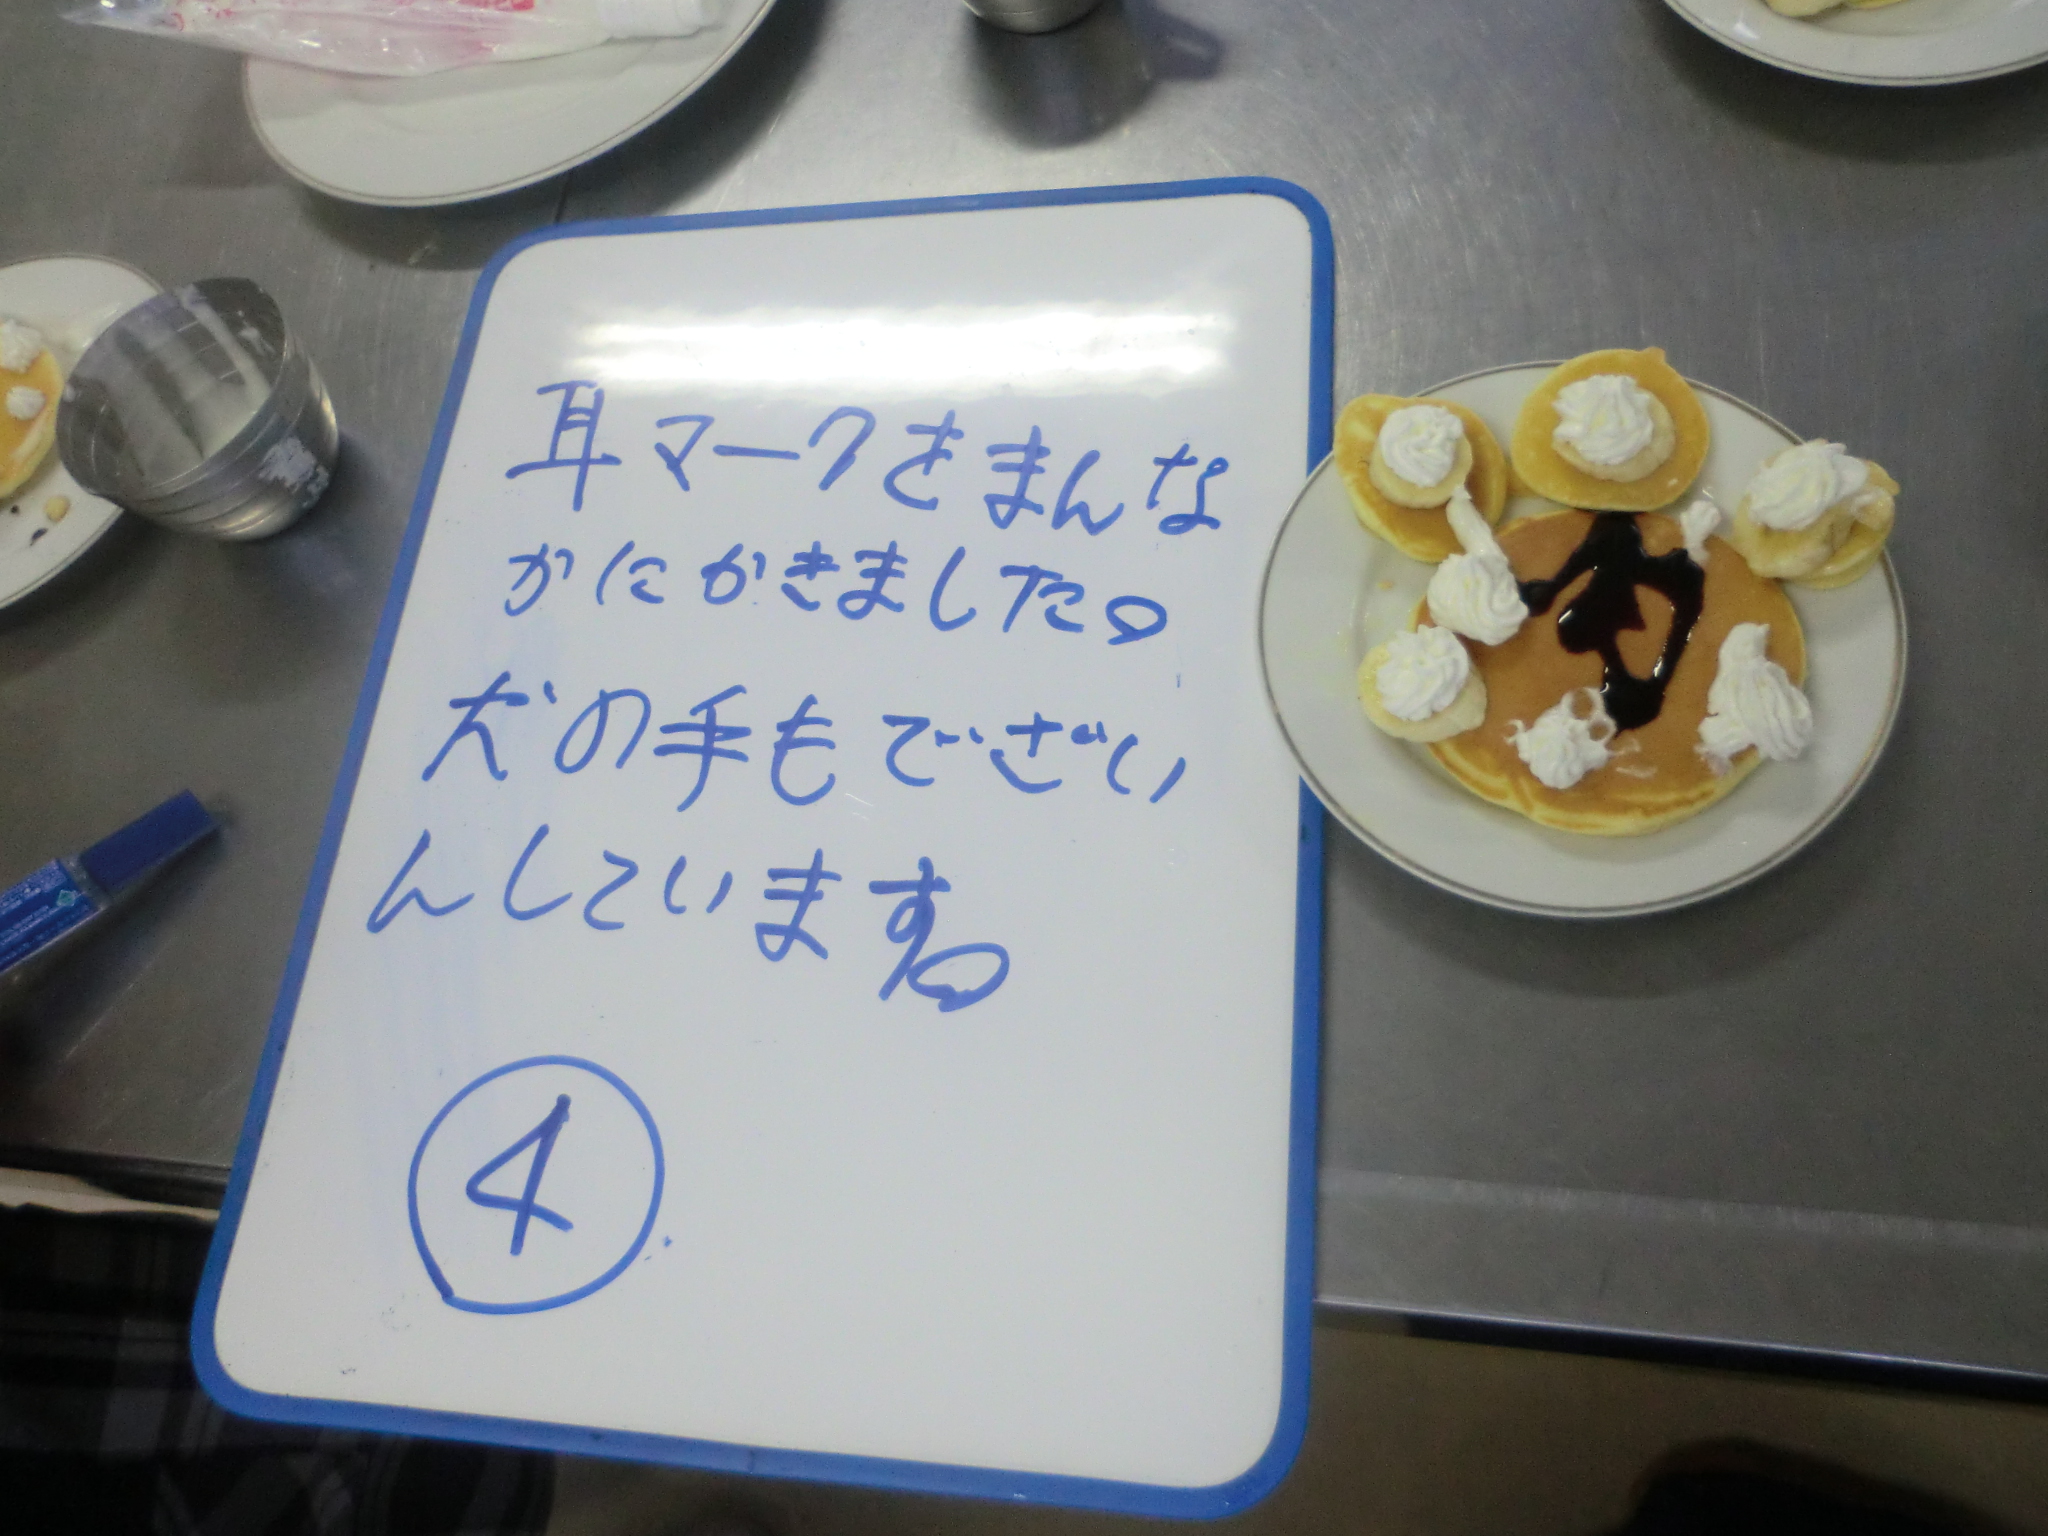 耳マークをまんな
かにかきました。
犬の手もでざい
んしています。
④